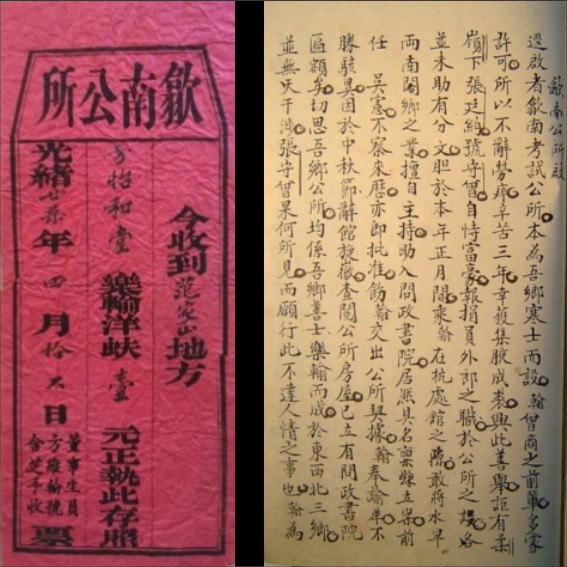 歙南公所
今收到范家山地方
方怡和堂樂輸洋蚨壹元正執此存照
光緒廿柒年四月拾六日董事生員方維翰號含芝手收票
歙南公所啟
逕啟者歙南考試公所本為吾鄉寒士而設翰曾商之前輩多蒙
許可所以不辭勞瘁辛苦三年幸獲集腋成裘興此善舉詎有柔
嶺下張廷絹號守曾自恃富豪報捐員外郎之職於公所之設各
並未助有分文胆於本年正月間乘翰在杭處館之隙敢將水旱
兩南闔鄉之業擅自主持助入問政書院居然具名禀縣立案前
任 吳憲不察來歷亦即批准飭翰交出公所契據翰奉諭不
勝駭異因於中秋節辭館旋徽查閱公所房屋已立有問政書院
匾額矣切思吾鄉公所均係吾鄉善士樂輸而成於東西北三鄉
並無干涉張守曾果何所見而願行此不達人情之事也翰為